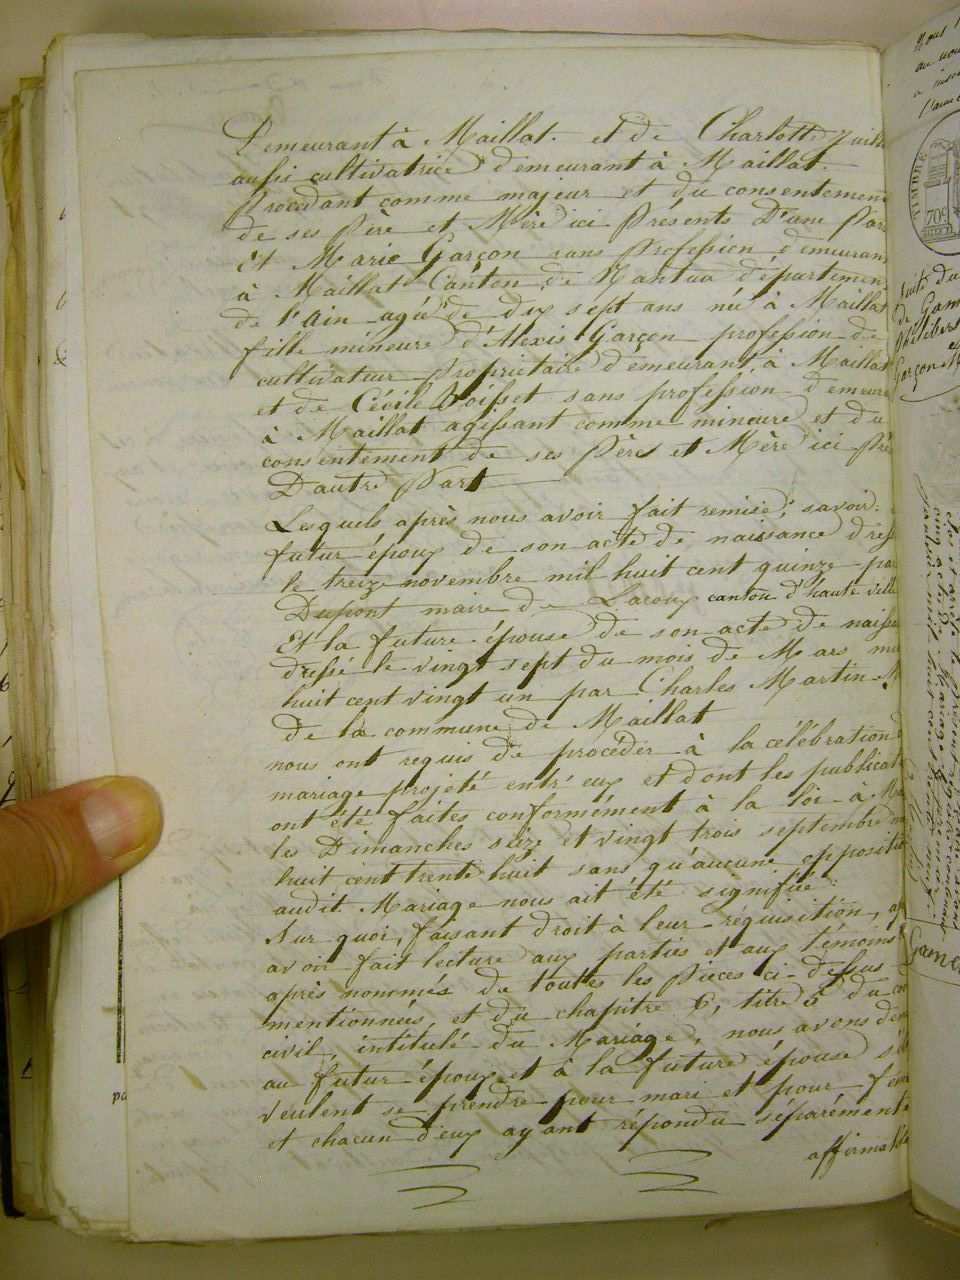 Demeurant à Maillat. et de Charlotte Juill
aussi cultivatrice demeurant à Maillat.
Procédant comme majeur et du consentement
de ses Père et Mère ici Présents D'une Par
Et Marie Garçon sans Profession demeuran
à Maillat Canton de Nantua département
de l'Ain agée de dix sept ans née à Maillat
fille mineure d'Alexis Garçon profession de
cultivateur Propriétaire demeurant à Maillat
et de Cécile Boisset sans profession demeura
à Maillat agissant comme mineure et du
consentement de ses Pères et Mère ici Pré
D'autre Part
Lesquels après nous avoir fait remise, savoir.
futur époux de son acte de naissance dres
le treize novembre mil huit cent quinze par
Dupont maire de Lacoux canton d'haute ville
Et la future épouse de son acte de naissa
dressé le vingt sept du mois de Mars mil
huit cent vingt un par Charles Martin M
de la commune de Maillat
nous ont requis de procéder à la célébration d
mariage projeté entr'eux et dont les publicat
ont été faites conformément à la loi à Ma
les Dimanches seize et vingt trois septembre m
huit cent trente huit sans qu'aucune oppositi
audit Mariage nous ait été signifiée :
Sur quoi, faisant droit à leur réquisition, ap
avoir fait lecture aux parties et aux témoins
après nommés de toutes les Pièces ci-dessus
mentionnées, et du chapitre 6, titre 5 du co
civil, intitulé du Mariage, nous avons dem
au futur époux et à la future épouse s'il
veulent se prendre pour mari et pour fem
et chacun d'eux ayant répondu séparément
affirmative
TIMBRE
70c
suite du
de Gam
Philibert
et
Garçon M
Gamen